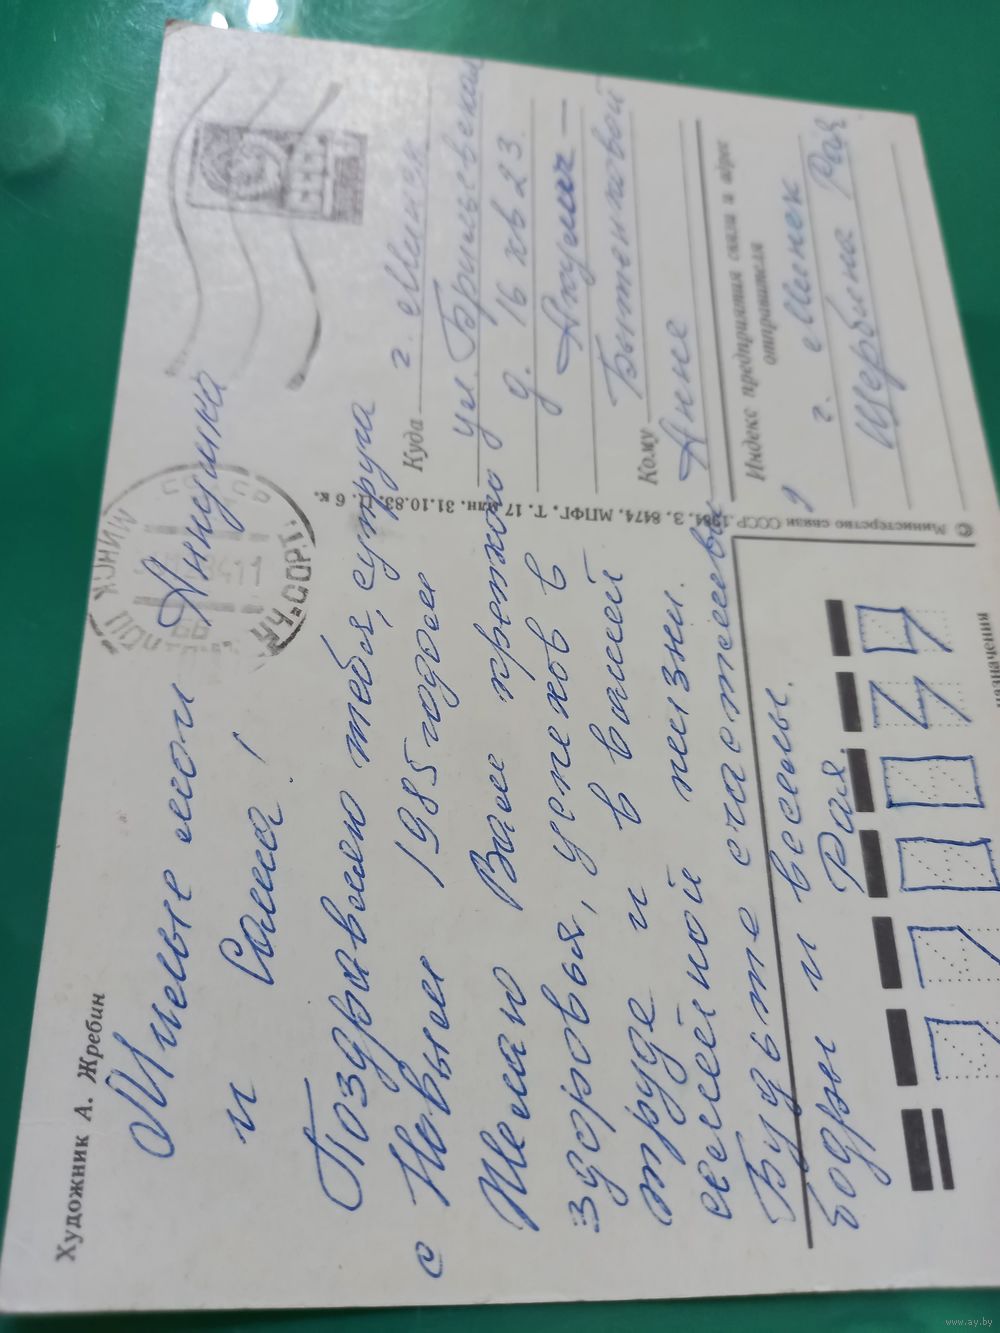 Художник А. Жребин
Милые мои Аннушка
и Саша!
Поздравляю тебя, супруга
с Новым 1985 годом
Желаю Вам крепкого
здоровья, успехов в
труде и в вашей
семейной жизни.
Будьте счастливы
бодры и веселы.
Рая.
МИНСК
СССР
Куда г. Минск
ул.
д. 16 кв 23
Акулич —
Кому
Анне
Индекс предприятия связи и адрес
отправителя
г. Минск
Щербина Рая
© Министерство связи СССР. 1984. З. 8474, МПФГ, Т. 17 млн. 31.10.83. Ц. 6 к.
www.ay.by